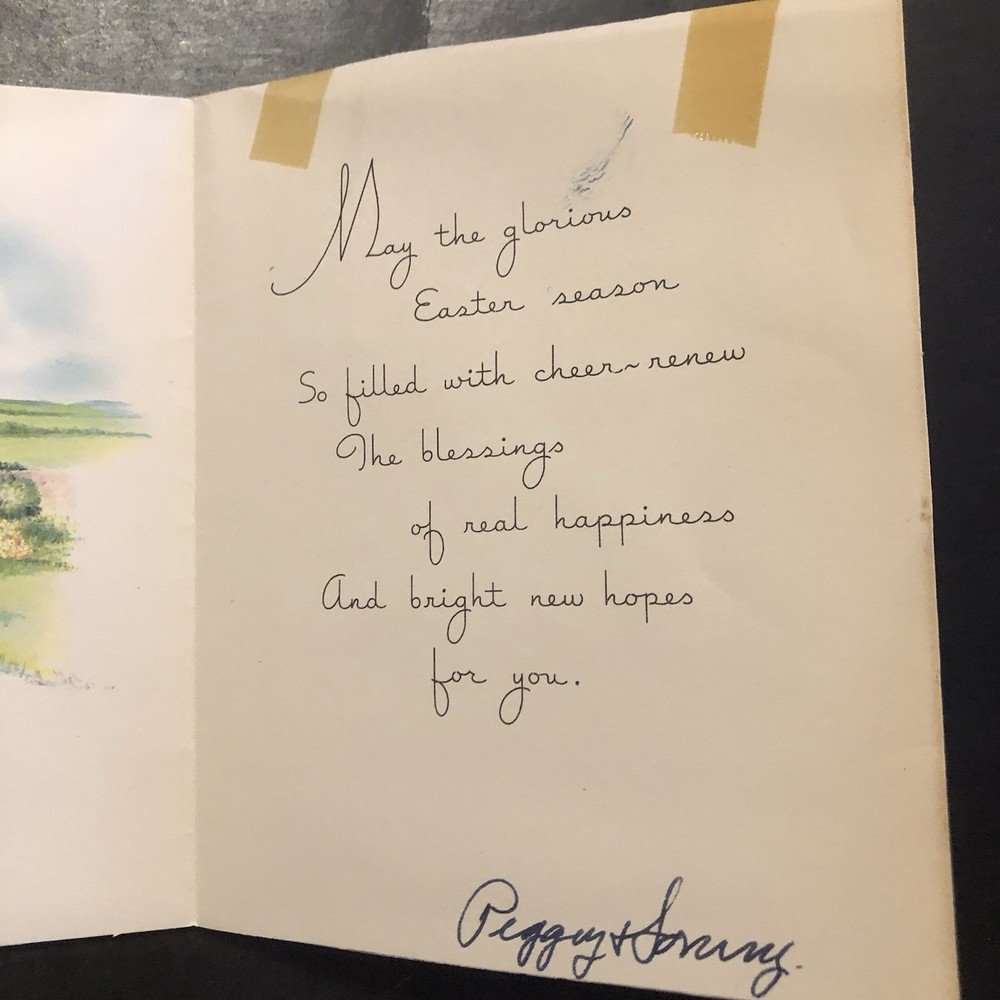 May the glorious
Easter season
So filled with cheer~renew
The blessings
of real happiness
And bright new hopes
for you.
Peggy + Sonny.